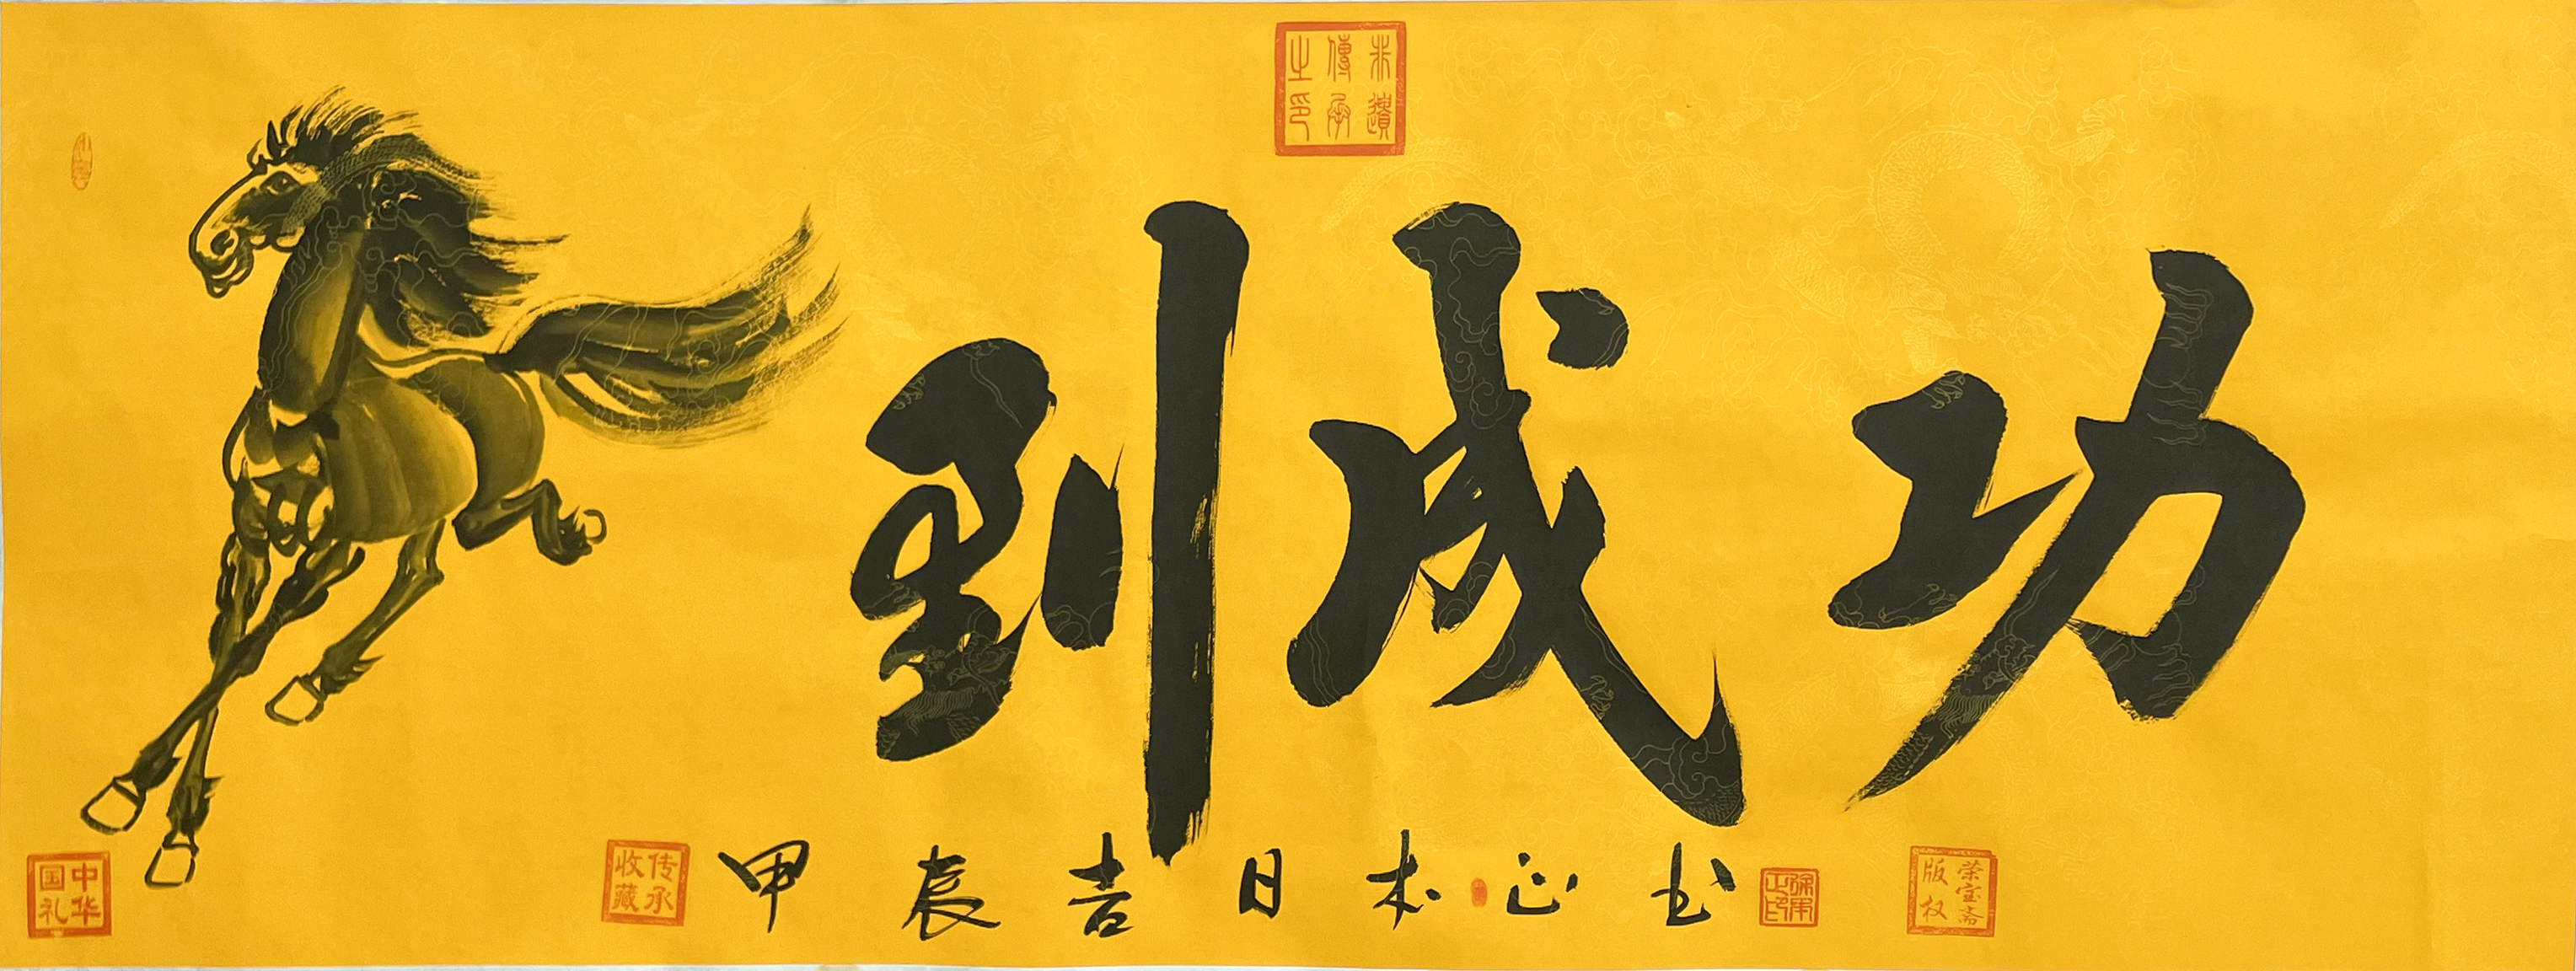 非遺傳承之印
到成功
甲辰吉日木正书
中华国礼
传承收藏
荣宝斋版权